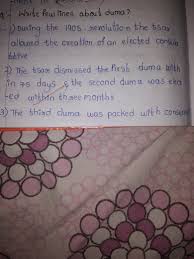 Write few lines about duma?
1) During the 1905 revolution the tsar
allowed the creation of an elected consul
tative
2) The tsar dismissed the first duma with
in 75 days & the second duma was ele
ted within three months
3) The third duma was packed with conser